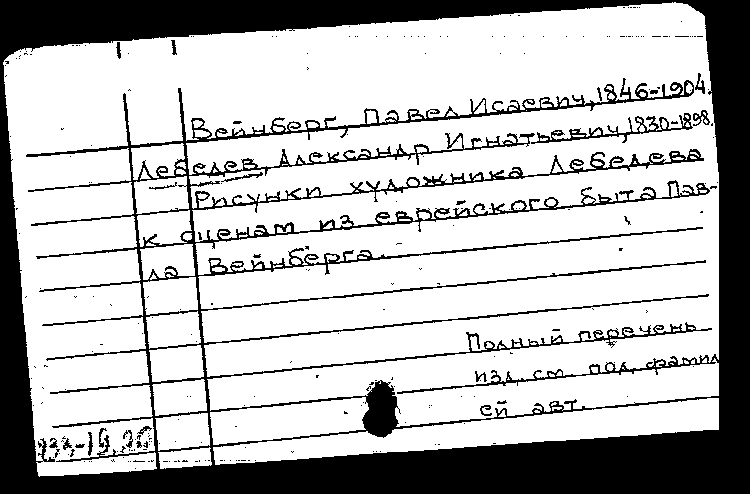 Вейнберг, Павел Исаевич, 1846-1904.
Лебедев, Александр Игнатьевич, 1830-1898.
Рисунки художника Лебедева
к сценам из еврейского быта Пав-
ла Вейнберга.
Полный перечень
изд. см. под фамил
ей авт.